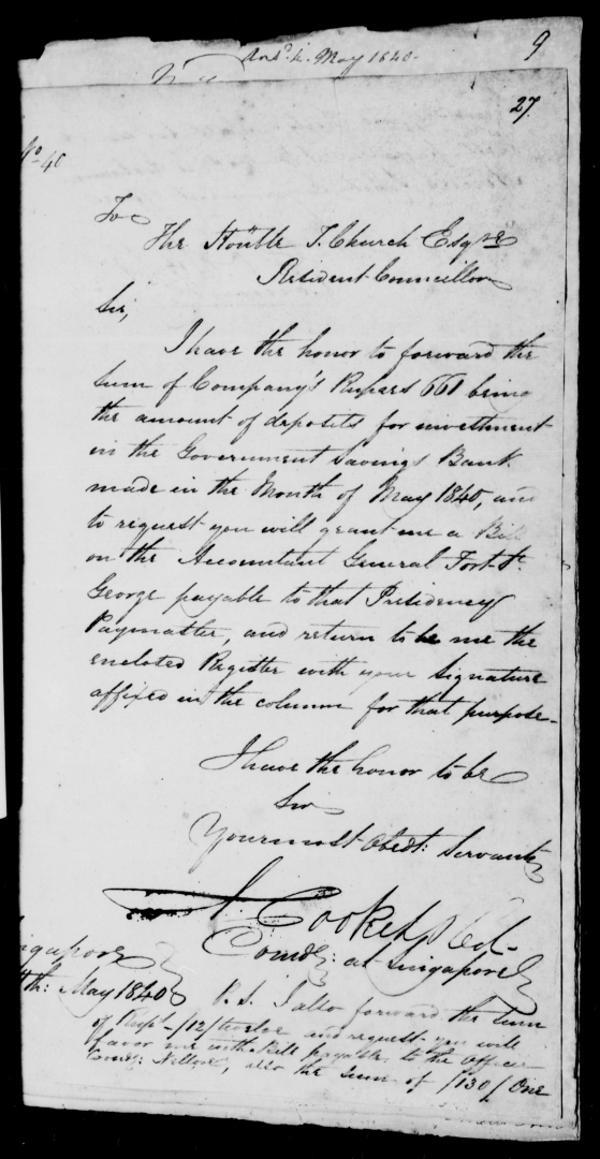 May 1840.
9
27
No 40
To
The Honble T. Church Esqre
Resident Councillor
Sir,
I have the honor to forward the
Sum of Company's Rupees 661 being
the amount of deposits for investment
in the Government Savings Bank
made in the Month of May 1840, and
to request you will grant me a Bill
on the Accountant General Fort St.
George payable to that Presidency
Paymaster, and return to me the
enclosed Register with your Signature
affixed in the column for that purpose.
I have the honor to be
Sir
Your most Obedt: Servant
Comdg: at Singapore
Singapore
May 1840
P.S. I also forward the Sum
of Rups. /12/ twelve and request you will
favor me with a Bill payable to the Officer
Comdg: Nellore, also the Sum of /130/ One